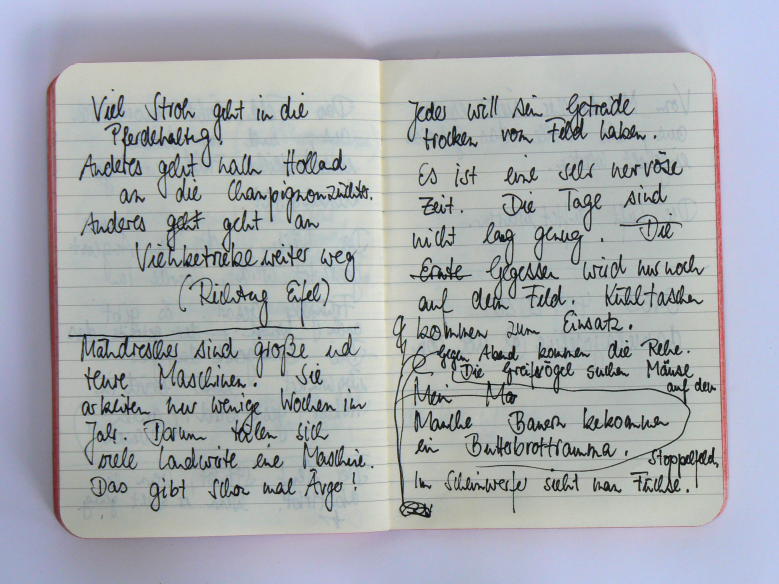 Viel Stroh geht in die
Pferdehaltung.
Anderes geht nach Holland
an die Champignonzüchter.
Anderes geht geht an
Viehbetriebe weiter weg
(Richtung Eifel)
Mähdrescher sind große und
teure Maschinen. Sie
arbeiten nur wenige Wochen im
Jahr. Darum teilen sich
viele Landwirte eine Maschine.
Das gibt schon mal Ärger!
Jedes will sein Getreide
trocken vom Feld haben.
Es ist eine sehr nervöse
Zeit. Die Tage sind
nicht lang genug. Die
Ernte Gegessen wird nur noch
auf dem Feld. Kühltaschen
kommen zum Einsatz.
Gegen Abend kommen die Rehe.
Die Greifvögel suchen Mäuse
auf dem
Mein Ma
Manche Bauern bekommen
ein Butterbrottrauma.
Stoppelfeld
Im Scheinwerfer sieht man Füchse.